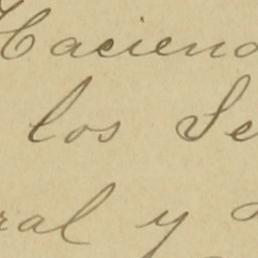 Haciend
los Se
ral y